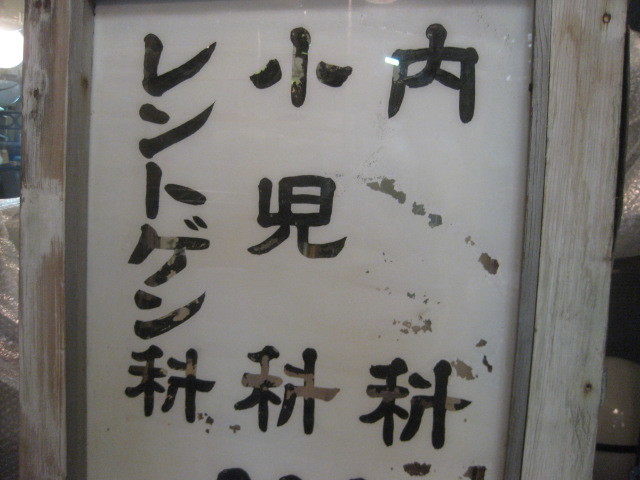 内科
小児科
レントゲン科